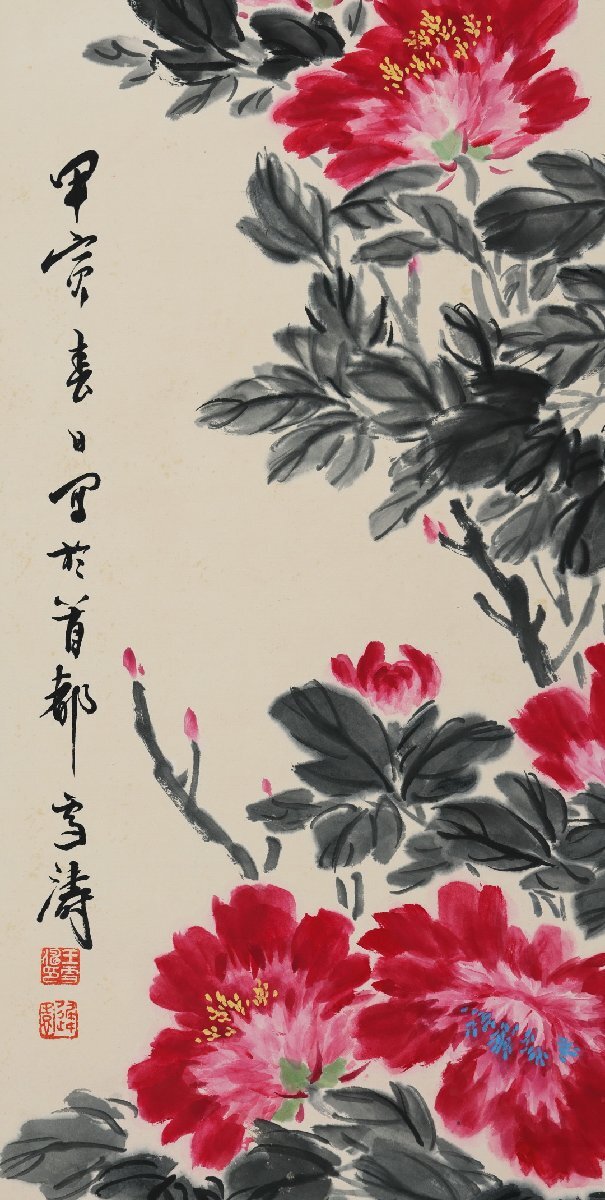 甲寅春日写於首都雪濤
王雪濤印